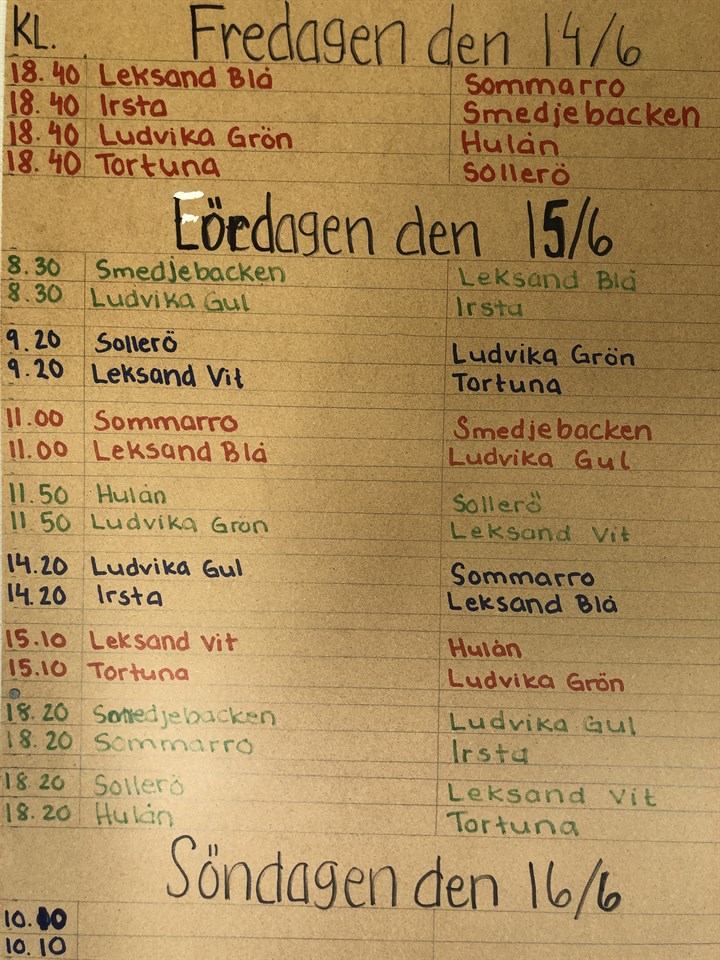 KL. Fredagen den 14/6
18.40 Leksand Blå Sommarro
18.40 Irsta Smedjebacken
18.40 Ludvika Grön Hulån
18.40 Tortuna Sollerö
Lördagen den 15/6
8.30 Smedjebacken Leksand Blå
8.30 Ludvika Gul Irsta
9.20 Sollerö Ludvika Grön
9.20 Leksand Vit Tortuna
11.00 Sommarro Smedjebacken
11.00 Leksand Blå Ludvika Gul
11.50 Hulån Sollerö
11.50 Ludvika Grön Leksand Vit
14.20 Ludvika Gul Sommarro
14.20 Irsta Leksand Blå
15.10 Leksand Vit Hulån
15.10 Tortuna Ludvika Grön
18.20 Smedjebacken Ludvika Gul
18.20 Sommarro Irsta
18.20 Sollerö Leksand Vit
18.20 Hulån Tortuna
Söndagen den 16/6
10.10
10.10